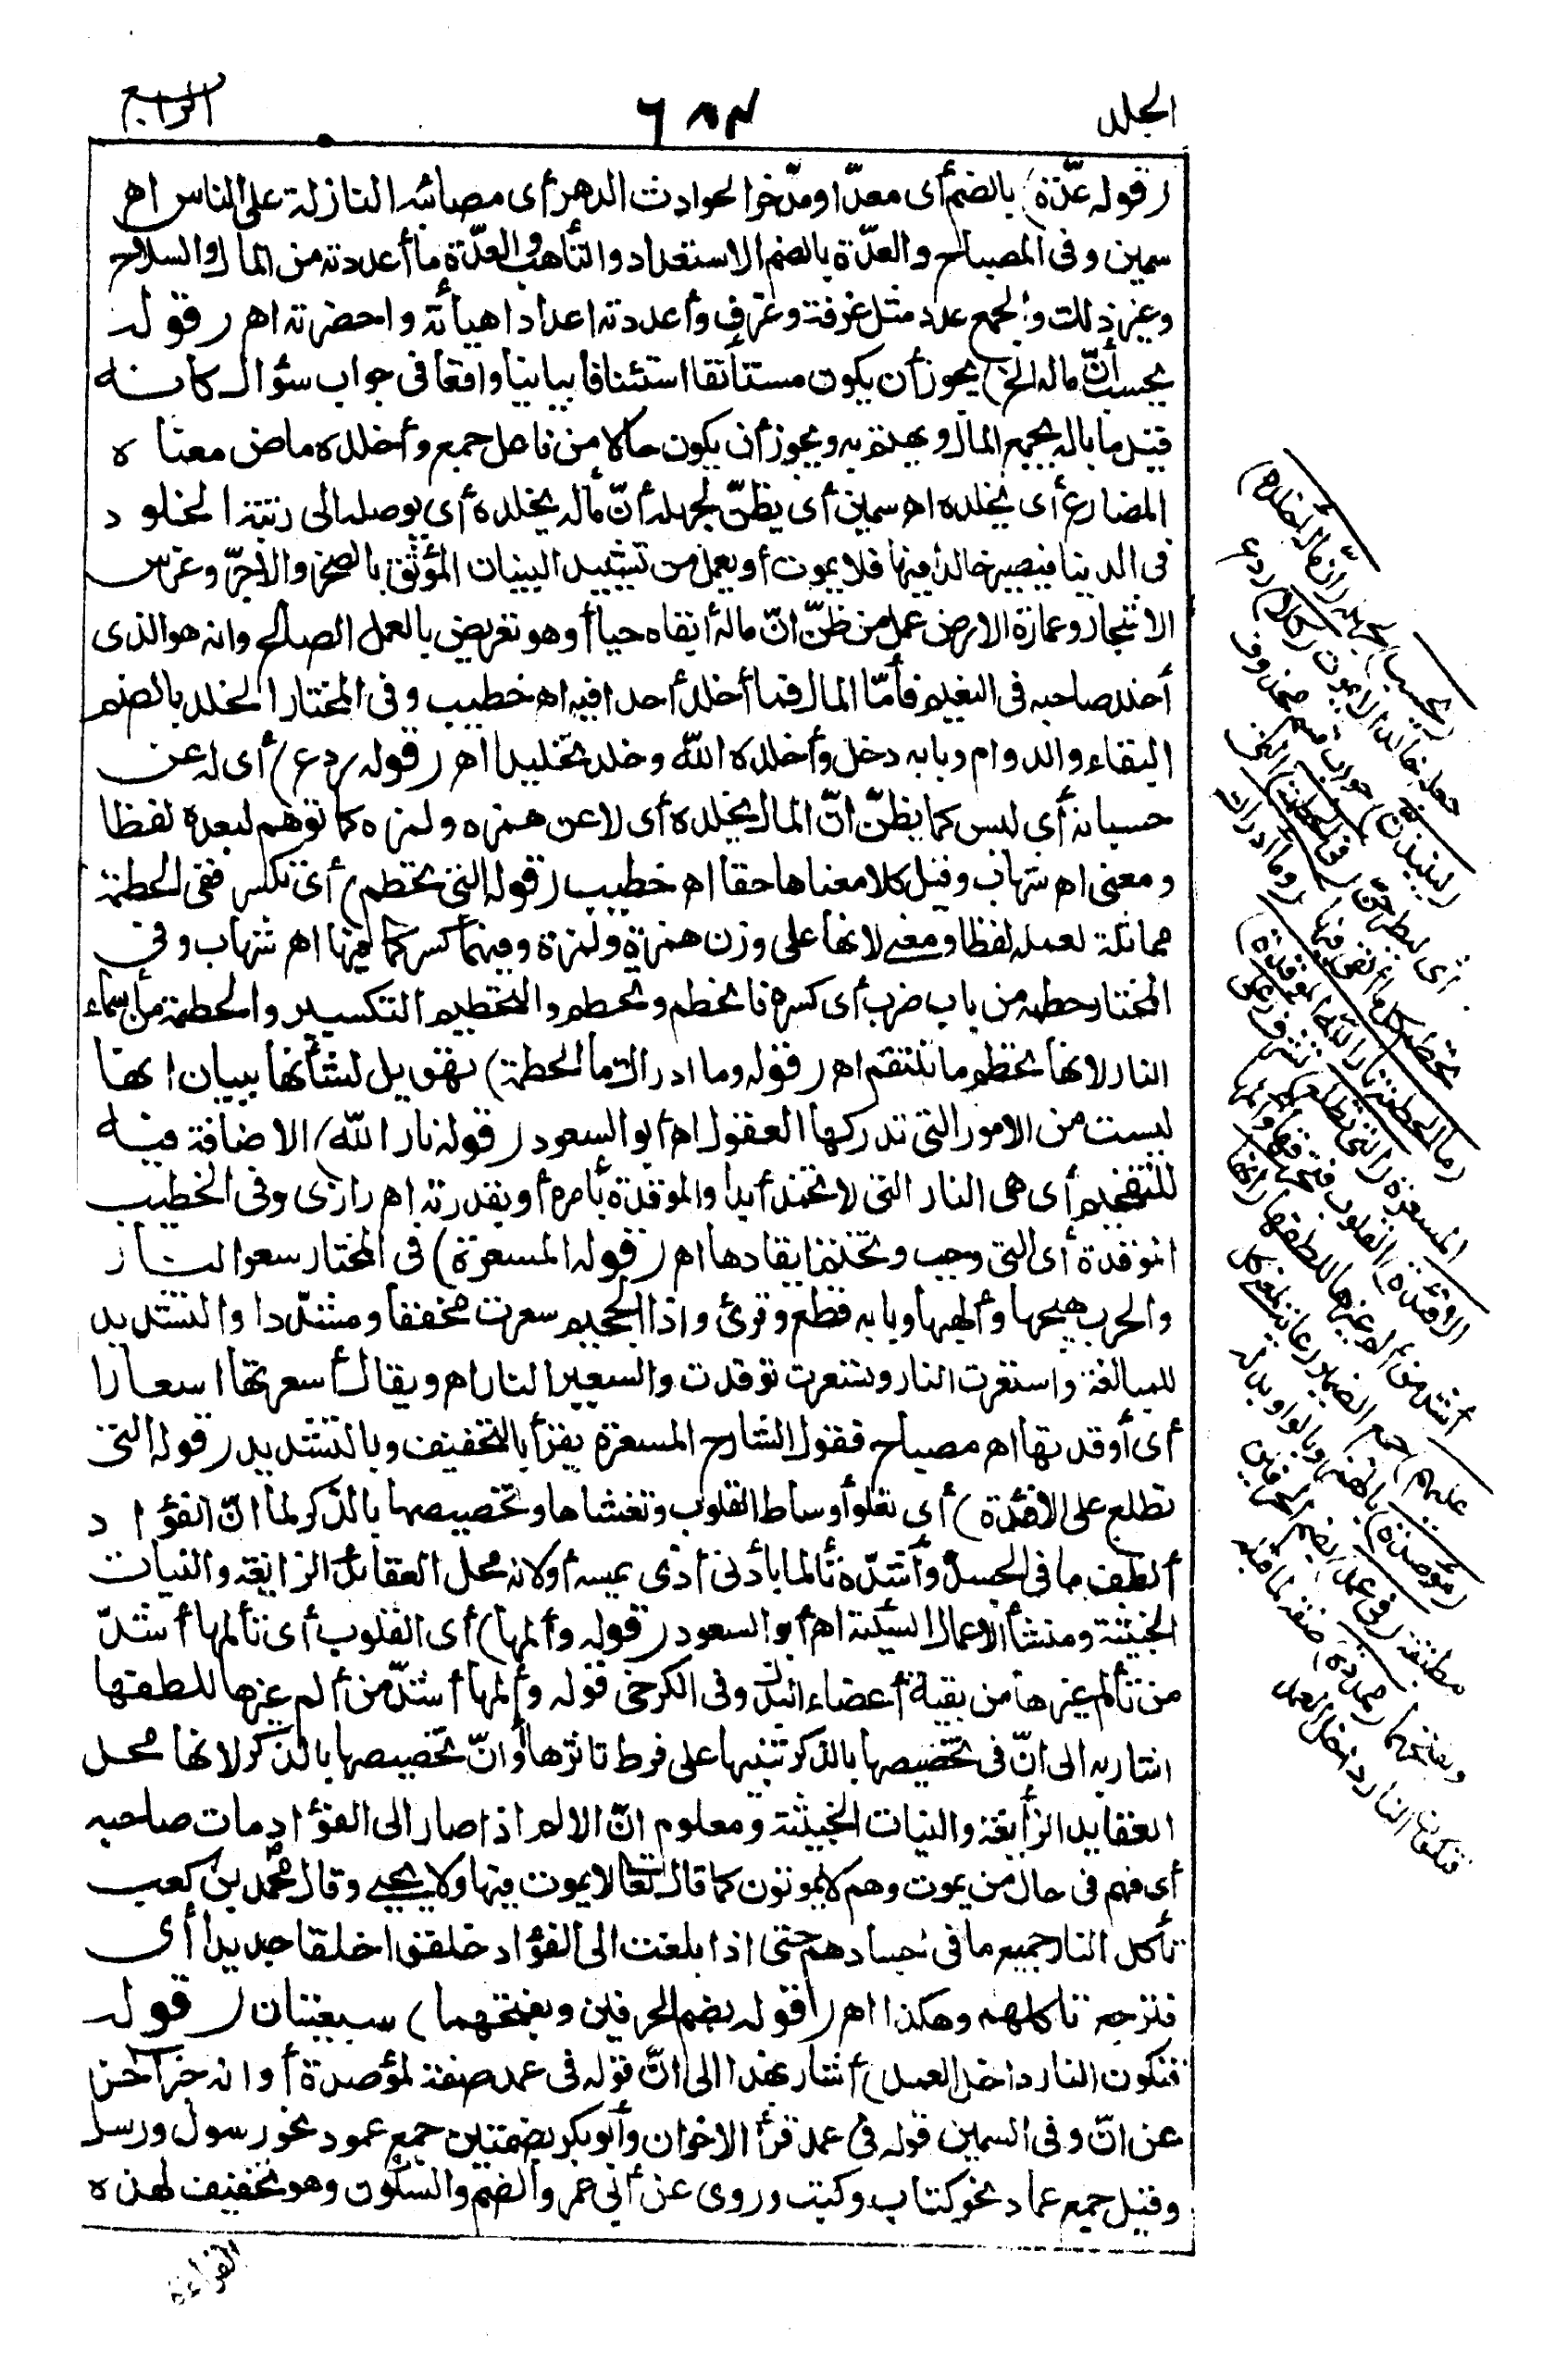 الجلد ٦٨٣ الرابع
(قوله عدّة) بالضم أى معدّا ومدّخرا لحوادث الدهر أى مصائبه النازلة على الناس اهـ
سمين وفى المصباح والعدّة بالضم الاستعداد والتأهب والعدّة ما أعددته من المال والسلاح
وغير ذلك والجمع عدد مثل غرفة وغرف وأعددته اعدادا هيأته واحضرته اهـ (قوله
يحسب أنّ ماله الخ) يجوز أن يكون مستأنفا استئنافا بيانيا واقعا فى جواب سؤال كأنه
قيل ما باله يجمع المال ويهتم به ويجوز أن يكون حالا من فاعل جمع وأخلده ماض معناه
المضارع أى يخلده اهـ سمين أى يظنّ لجهله أنّ ماله يخلده أى يوصله الى رتبة الخلود
فى الدنيا فيصير خالدا فيها فلا يموت أو يعمل من تشييد البنيان المؤثق بالصخر والآجرّ وغرس
الاشجار وعمارة الارض عمل من ظنّ انّ ماله أبقاه حيا أو هو تعريض بالعمل الصالح وانه هو الذى
أخلد صاحبه فى النعيم فأمّا المال فما أخلد أحدا فيه اهـ خطيب وفى المختار الخلد بالضم
البقاء والدوام وبابه دخل وأخلده اللّه وخلده تخليدا اهـ (قوله ردع) أى له عن
حسبانه أى ليس كما يظنّ انّ المال يخلده أى لا عن همزه ولمزه كما توهم لبعده لفظا
ومعنى اهـ شهاب وقيل كلا معناها حقا اهـ خطيب (قوله التى تحطم) أى تكسر ففى الحطمة
مماثلة لعمله لفظا ومعنى لانها على وزن همزة ولمزة وفيهما كسر كما فيها اهـ شهاب وفى
المختار حطمه من باب ضرب أى كسره فانحطم وتحطم والتحطيم التكسير والحطمة من أسماء
النار لانها تحطم ما تلتقم اهـ (قوله وما ادراك ما الحطمة) تهويل لشأنها ببيان انها
ليست من الامور التى تدركها العقول اهـ أبو السعود (قوله نار اللّه) الاضافة فيه
للتفخيم أى هى النار التى لا تخمد أبدا والموقدة بأمره أو بقدرته اهـ رازى وفى الخطيب
الموقدة أى التى وجب وتحتم ايقادها اهـ (قوله المسعرة) فى المختار سعر النار
والحرب هيجها وألهبها وبابه قطع وقرئ واذا الجحيم سعرت مخففا ومشدّدا والتشديد
للمبالغة واستعرت النار وتسعرت توقدت والسعير النار اهـ ويقال أسعرتها اسعارا
أى أوقدتها اهـ مصباح فقول الشارح المسعرة يقرأ بالتخفيف وبالتشديد (قوله التى
تطلع على الافئدة) أى تعلو أوساط القلوب وتغشاها وتخصيصها بالذكر لما انّ الفؤاد
ألطف ما فى الجسد وأشدّه تألما بأدنى أذى يمسه أو لانه محل العقائد الزائغة والنيات
الخبيثة ومنشأ الاعمال السيئة اهـ أبو السعود (قوله وألمها) أى القلوب أى تألمها أشدّ
من تألم غيرها من بقية أعضاء البدن وفى الكرخى قوله وألمها أشدّ من ألم غيرها للطفها
اشار به الى انّ فى تخصيصها بالذكر تنبيها على فرط تاثرها أو انّ تخصيصها بالذكر لانها محل
العقايد الزايغة والنيات الخبيثة ومعلوم انّ الالم اذا صار الى الفؤاد مات صاحبه
أى فهم فى حال من يموت وهم لا يموتون كما قال تعالى لا يموت فيها ولا يحيى وقال محمد بن كعب
تأكل النار جميع ما فى أجسادهم حتى اذا بلغت الى الفؤاد خلقوا خلقا جديدا أى
فترجع تاكلهم وهكذا اهـ (قوله بضم الحرفين وبفتحهما) سبعيتان (قوله
فتكون النار داخل العمد) أشار بهذا الى انّ قوله فى عمد صفة لمؤصدة أو انه خبر آخر
عن انّ وفى السمين قوله فى عمد قرأ الاخوان وأبو بكر بضمتين جمع عمود نحو رسول ورسل
وقيل جمع عماد نحو كتاب وكتب وروى عن أبى عمرو الضم والسكون وهو تخفيف لهذه
القراءة
(يحسب) لجهله (أنّ ماله أخلده)
جعله خالدا لا يموت (كلا) ردع
(لينبذن) جواب قسم محذوف
أى ليطرحن (فى الحطمة) التى
تحطم كل ما ألقى فيها (وما أدراك
ما الحطمة نار اللّه الموقدة)
المسعرة (التى تطلع) تشرف (على
الافئدة) القلوب فتحرقها وألمها
أشد من ألم غيرها للطفها (انها
عليهم) جمع الضمير رعاية لمعنى كل
(مؤصدة) بالهمز وبالواو بدله
مطبقة (فى عمد) بضم الحرفين
وبفتحهما (ممددة) صفة لما قبله
فتكون النار داخل العمد